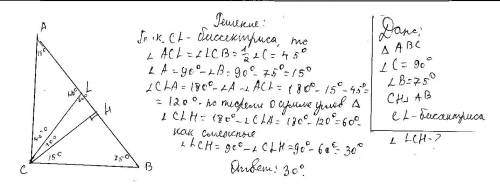 Решение:
Т.к. CL - биссектриса, то
∠ACL = ∠LCB = 1/2 ∠C = 45°
∠A = 90° - ∠B = 90° - 75° = 15°
∠CLA = 180° - ∠A - ∠ACL = 180° - 15° - 45° =
= 120° - по теореме о сумме углов Δ
∠CLH = 180° - ∠CLA = 180° - 120° = 60° -
как смежные
∠LCH = 90° - ∠CLH = 90° - 60° = 30°
Ответ: 30°.
Дано:
Δ ABC
∠C = 90°
∠B = 75°
CH⊥AB
CL - биссектриса
∠LCH - ?
A
15°
L
H
C
15°
75°
B